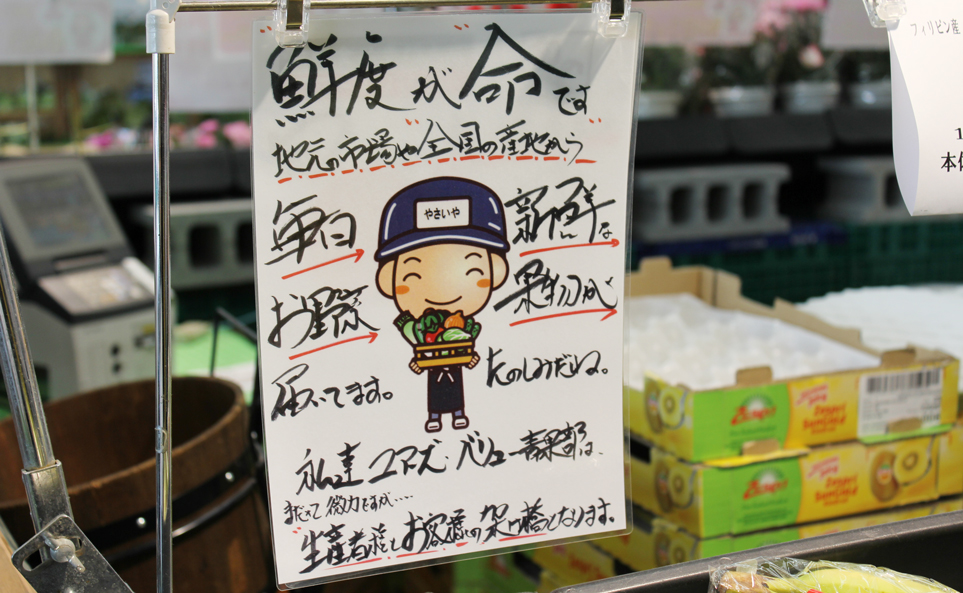 "鮮度が命です"
地元の市場や全国の産地から
毎日 新鮮な
お野菜 果物が
届いてます。
やさいや
私達 ユアーズ・バリュー青果部は、
まだまだ微力ですが‥‥
"生産者様とお客様との架け橋"となります。
フィリピン産
1
本体
Zespri
Zespri
SunGold
Zespri
Zespri
SunGold